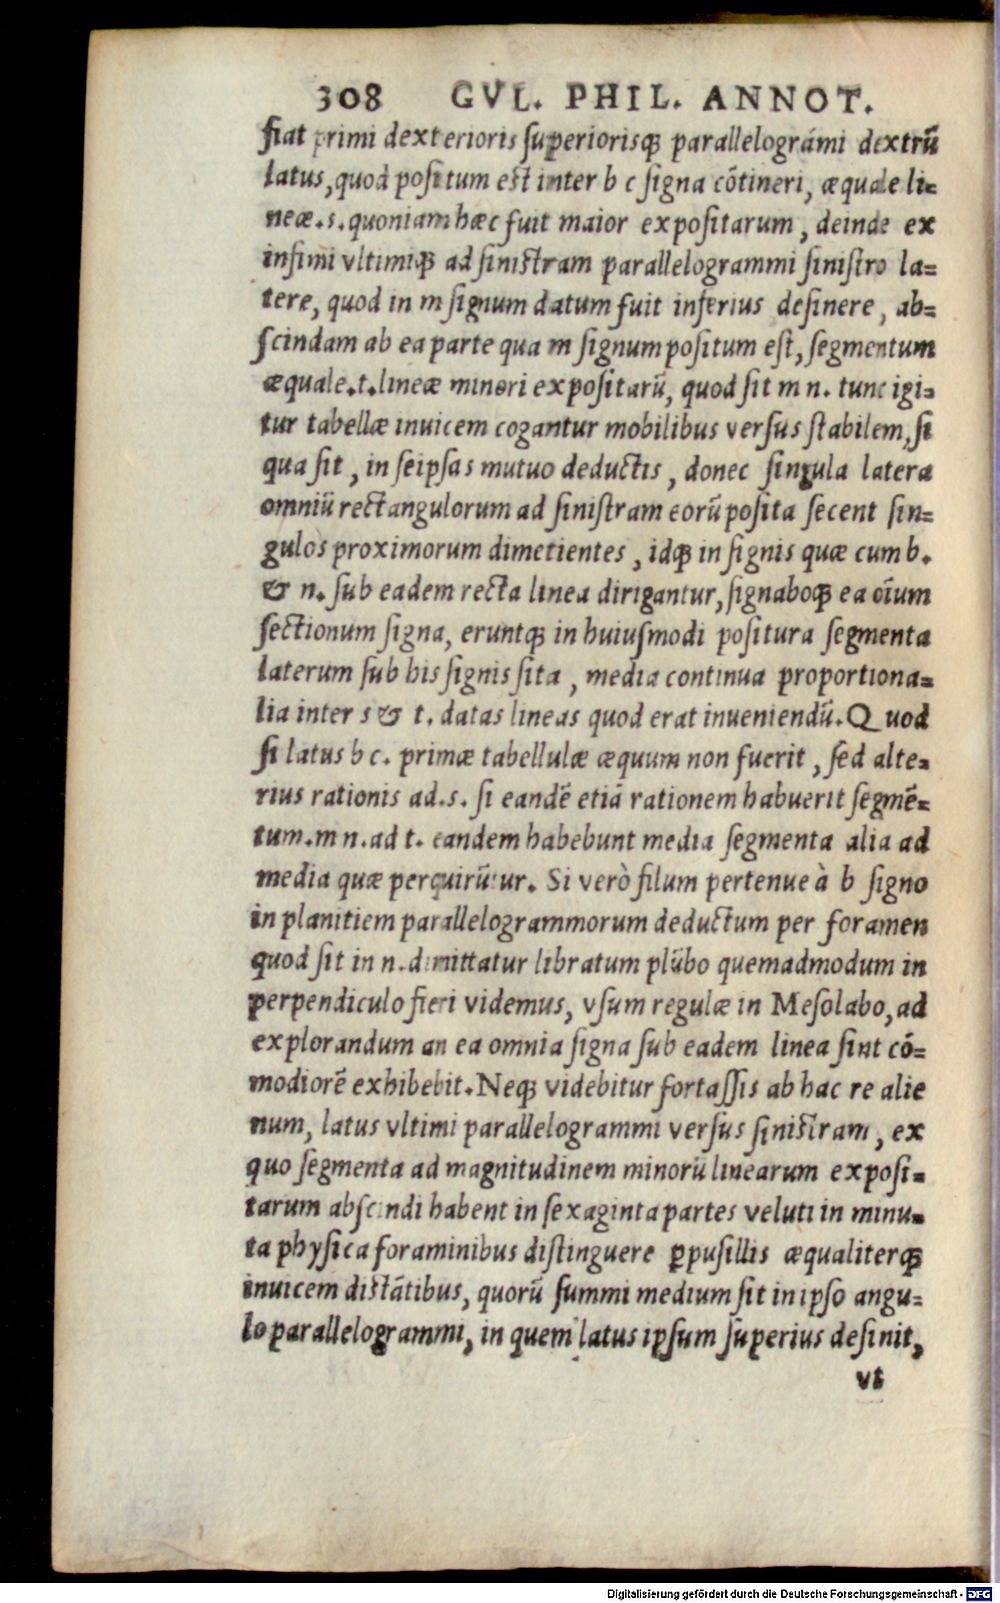 308 GVL. PHIL. ANNOT.
fiat primi dexterioris superiorisq; parallelográmi dextrũ
latus, quod positum est inter b c signa cõtineri, æquale li=
neæ.s. quoniam hæc fuit maior expositarum, deinde ex
infimi vltimiq; ad sinistram parallelogrammi sinistro la=
tere, quod in m signum datum fuit inferius desinere, ab=
scindam ab ea parte qua m signum positum est, segmentum
æquale.t.lineæ minori expositarũ, quod sit m n. tunc igi=
tur tabellæ inuicem cogantur mobilibus versus stabilem, si
qua sit, in seipsas mutuo deductis, donec singula latera
omniũ rectangulorum ad sinistram eorũ posita secent sin=
gulos proximorum dimetientes, idq; in signis quæ cum b.
& n. sub eadem recta linea dirigantur, signaboq; ea oĩum
sectionum signa, eruntq; in huiusmodi positura segmenta
laterum sub his signis sita, media continua proportiona=
lia inter s & t. datas lineas quod erat inueniendũ. Quod
si latus b c. primæ tabellulæ æquum non fuerit, sed alte=
rius rationis ad.s. si eandẽ etiã rationem habuerit segmẽ=
tum.m n.ad t. eandem habebunt media segmenta alia ad
media quæ perquirũtur. Si verò filum pertenue à b signo
in planitiem parallelogrammorum deductum per foramen
quod sit in n. dimittatur libratum plũbo quemadmodum in
perpendiculo fieri videmus, vsum regulæ in Mesolabo, ad
explorandum an ea omnia signa sub eadem linea sint cõ=
modiorẽ exhibebit. Neq; videbitur fortassis ab hac re alie
num, latus vltimi parallelogrammi versus sinistram, ex
quo segmenta ad magnitudinem minorũ linearum exposi=
tarum abscindi habent in sexaginta partes veluti in minu=
ta physica foraminibus distinguere ꝑpusillis æqualiterq;
inuicem distãtibus, quorũ summi medium sit in ipso angu=
lo parallelogrammi, in quem latus ipsum superius desinit,
vt
Digitalisierung gefördert durch die Deutsche Forschungsgemeinschaft - DFG